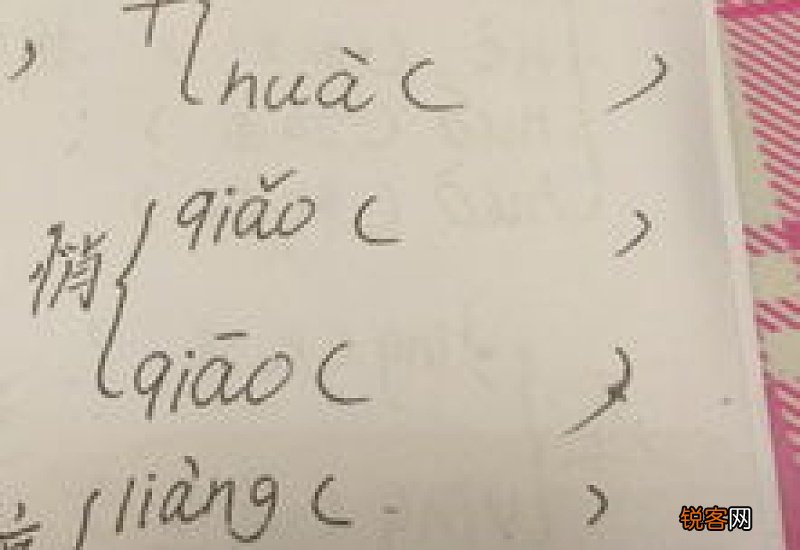 huà ( )
悄 qiǎo ( )
qiāo ( )
liàng ( )
锐客网